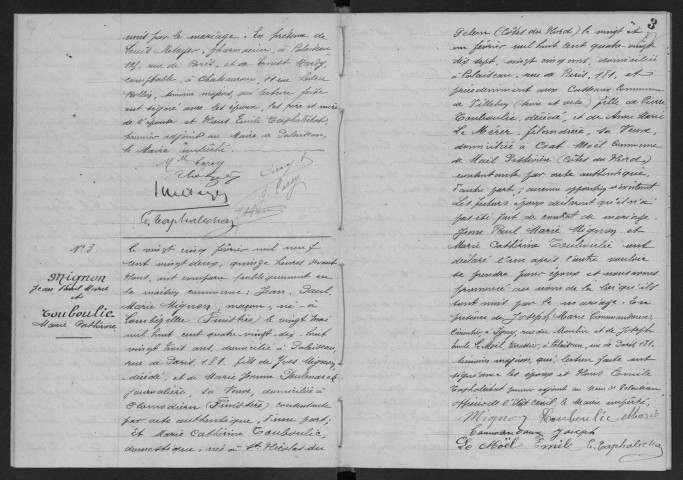 unis par le mariage. En présence de
Louis Metayer, pharmacien, à Palaiseau
121, rue de Paris, et de Ernest Hardy,
comptable, à Chateauroux, 11 rue Ledru
Rollin, témoins majeurs, qui lecture faite
ont signé avec les époux, les père et mère
de l'épouse et Nous Emile Tarphalechat,
premier adjoint au Maire de Palaiseau,
le Maire empêché.
N° 3
Mignon
Jean Paul Marie
et
Touboulic
Marie Catherine
Le vingt cinq février mil neuf
cent vingt deux, quinze heures devant
Nous, ont comparu publiquement en
la maison commune: Jean, Paul,
Marie Mignon, maçon, né à
(Finistère) le vingt
mil huit cent quatre-vingt-dix-huit
vingt trois ans, domicilié à Palaiseau,
rue de Paris, 181, fils de Yves Mignon,
décédé, et de Marie Jeanne
journalière, sa Veuve, domiciliée à
(Finistère) contractante
par acte authentique, d'une part;
Et Marie Catherine Touboulic,
domestique, née à St Nicolas du
3
Pelem (Côtes du Nord) le vingt et
un février mil huit cent quatre-vingt
dix sept, vingt cinq ans, domiciliée
à Palaiseau, rue de Paris, 181, et
précédemment aux Casseaux Commune
de Villebon (Seine et Oise), fille de Pierre
Touboulic, décédé, et de Anne Marie
Le Mérer, filandière, sa Veuve,
domiciliée à Coat-Moël Commune
de Maël Pestivien (Côtes du Nord),
contractante par acte authentique,
d'autre part; aucune opposition n'existant.
Les futurs époux déclarent qu'il n'a
pas été fait de contrat de mariage.
Jean Paul Marie Mignon et
Marie Catherine Touboulic ont
déclaré l'un après l'autre vouloir
se prendre pour époux et nous avons
prononcé au nom de la loi qu'ils
sont unis par le mariage. En
présence de Joseph Marie Commandeur,
à Igny, rue du Moulin et de Joseph
Emile Le Moël, à Palaiseau, rue de Paris 181,
témoins majeurs, qui, lecture faite ont
signé avec les époux et Nous Emile
Tarphalechat premier adjoint au Maire de Palaiseau,
officier de l'Etat Civil, le Maire empêché.
Mignon Touboulic Marie
Commandeur Joseph
Le Moël Emile